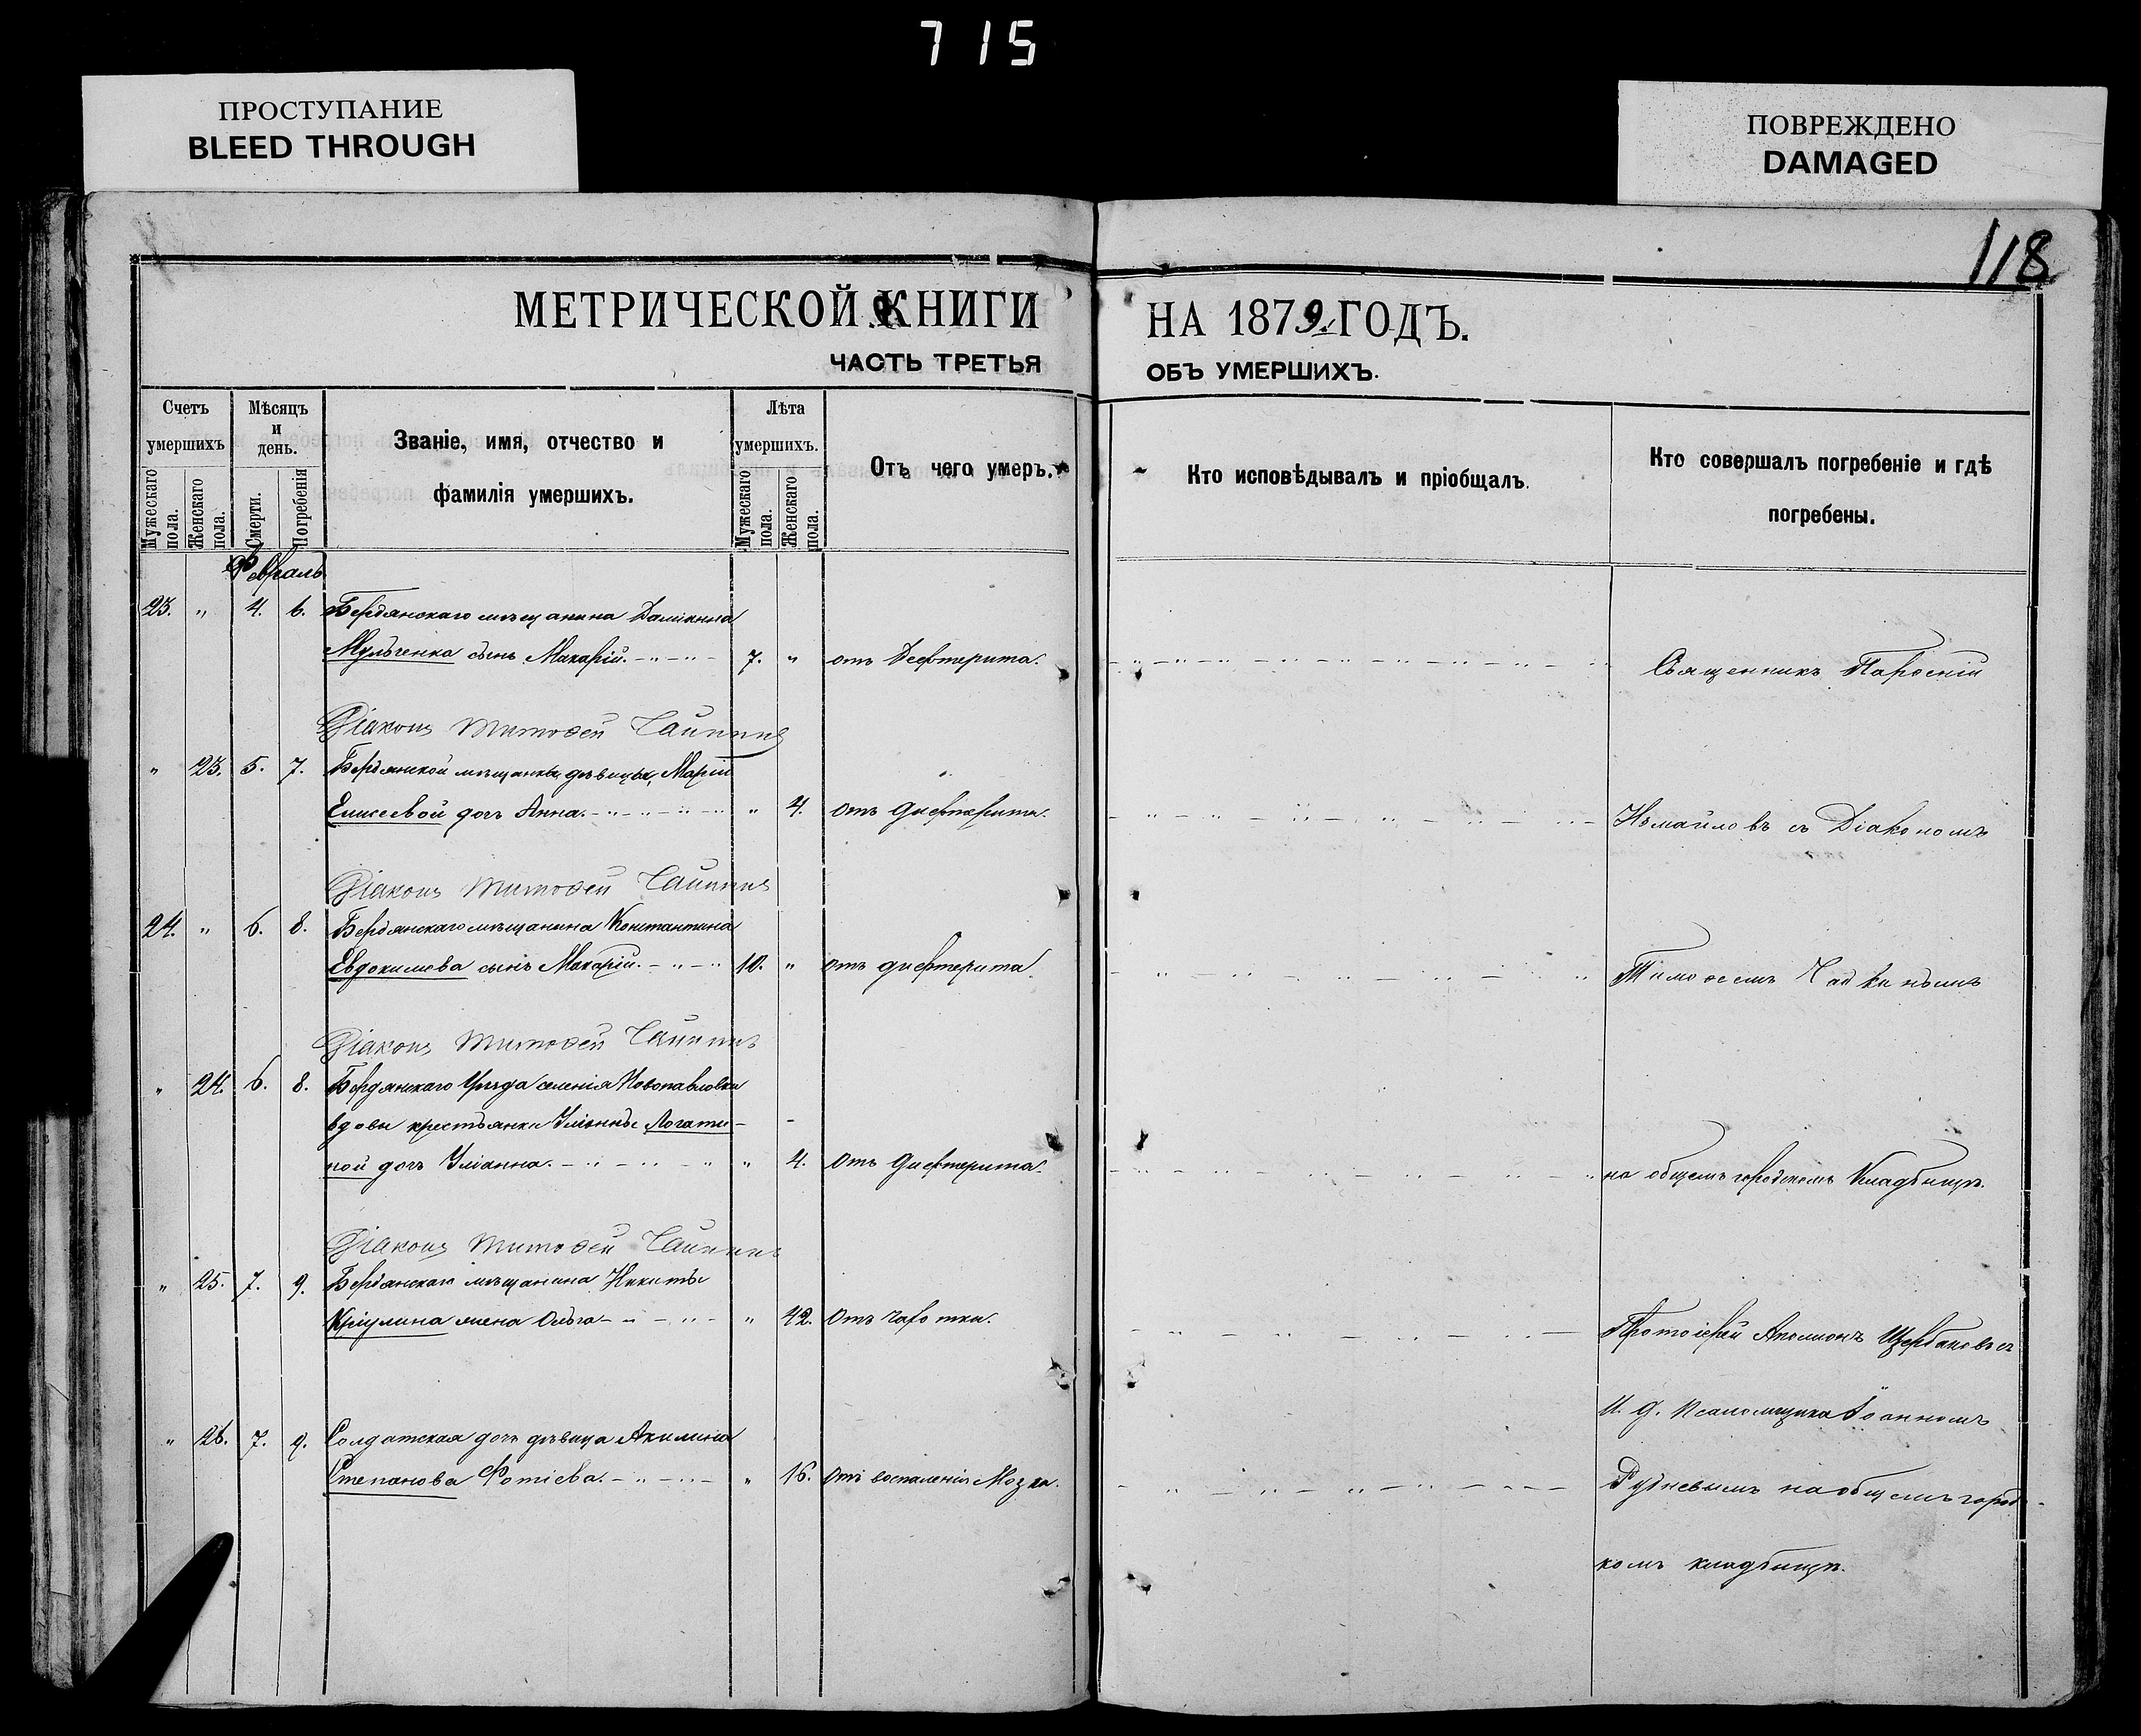 715
ПРОСТУПАНИЕ
BLEED THROUGH
ПОВРЕЖДЕНО
DAMAGED
118
МЕТРИЧЕСКОЙ КНИГИ НА 1879 ГОДЪ.
ЧАСТЬ ТРЕТЬЯ ОБЪ УМЕРШИХЪ.
Счетъ умершихъ
Мужескаго пола.
Женскаго пола.
Мѣсяцъ и день.
Смерти.
Погребенія
Званіе, имя, отчество и
фамилія умершихъ.
Лѣта умершихъ.
Мужескаго пола.
Женскаго пола.
Отъ чего умеръ.
Кто исповѣдывалъ и пріобщалъ.
Кто совершалъ погребеніе и гдѣ
погребены.
Февраль
23. " 4. 6. Бердянскаго мѣщанина Даміанна
Мульченка сынъ Макарій. 7. " отъ Дефтерита.
Священникъ
Діаконъ Тимоѳей
" 23. 5. 7. Бердянской мѣщанки, дѣвицы, Маріи
Елисеевой дочь Анна. " 4. отъ дифтерита.
Измайловъ съ Діакономъ
Діаконъ Тимоѳей
24. " 6. 8. Бердянскаго мѣщанина Константина
Евдокимова сынъ Макарій. 10. " отъ дифтерита.
Тимоѳеемъ
Діаконъ Тимоѳей
" 24. 6. 8. Бердянскаго Уѣзда селенія Новопавловки
вдовы крестьянки Ульяны Логати-
ной дочь Уліанна. " 4. отъ дифтерита.
на общемъ городскомъ Кладбищѣ.
Діаконъ Тимоѳей
" 25. 7. 9. Бердянскаго мѣщанина Никиты
Кріулина жена Ольга " 42. отъ чахотки.
Протоіерей Аполлонъ Щербаковъ съ
И. д. псаломщика Іоанномъ
" 26. 7. 9. Солдатская дочь дѣвица Акилина
Степанова Фотіева. " 16. отъ воспаленія Мозга.
Рудневымъ на общемъ город-
комъ кладбищѣ.